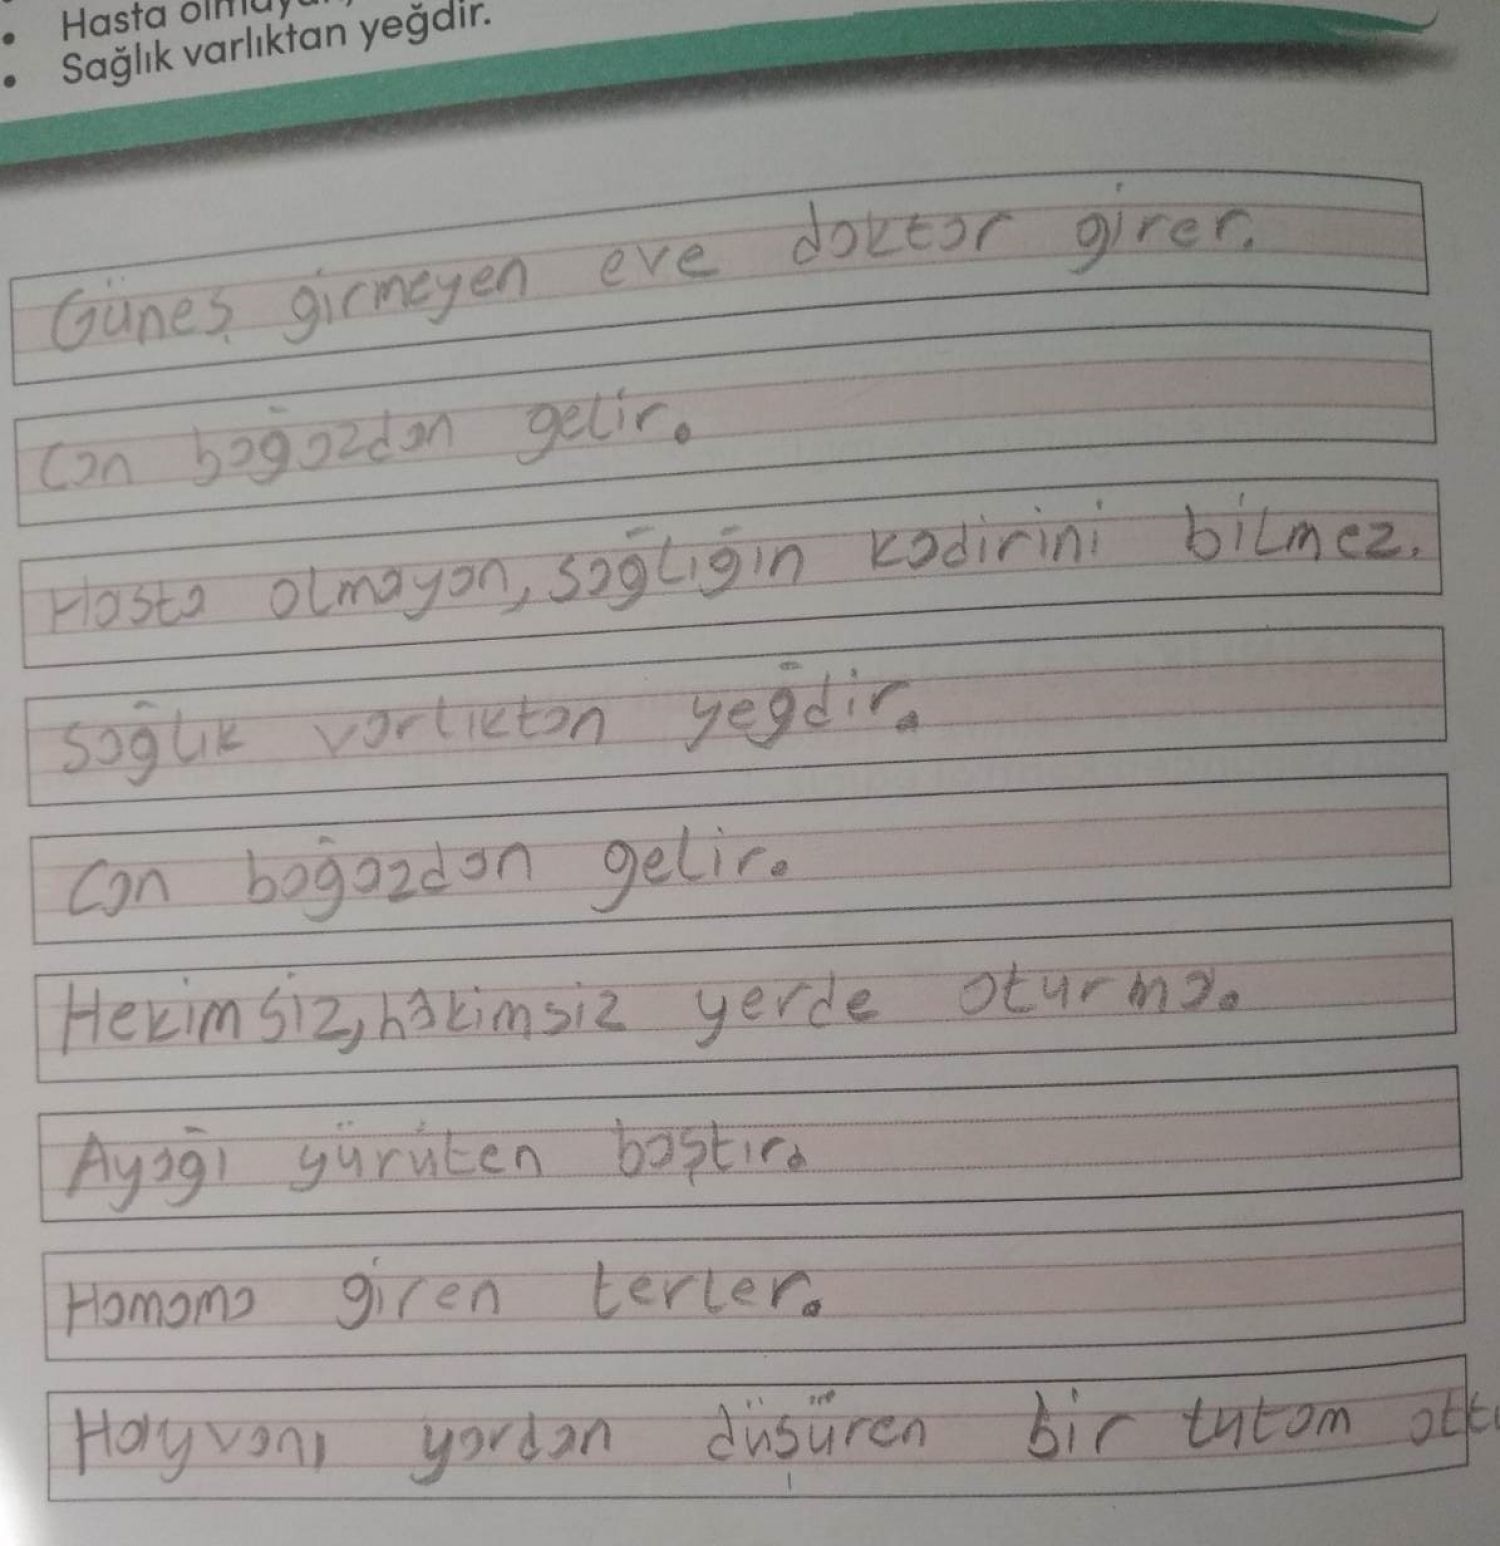 Hasta
Sağlık varlıktan yeğdir.
Güneş girmeyen eve doktor girer.
Can boğazdan gelir.
Hasta olmayan, sağlığın kadirini bilmez.
Sağlık varlıktan yeğdir.
Can boğazdan gelir.
Hekimsiz, hakimsiz yerde oturma.
Ayağı yürüten baştır.
Hamama giren terler.
Hayvanı yardan düşüren bir tutam